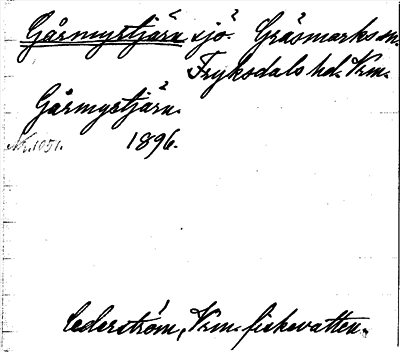 Gårmyrtjärn sjö. Gräsmarks sn.
Fryksdals hd. Vrm.
Gårmyrtjärn.
Nr. 1051. 1896.
Cederström, Vrm. fiskevatten.